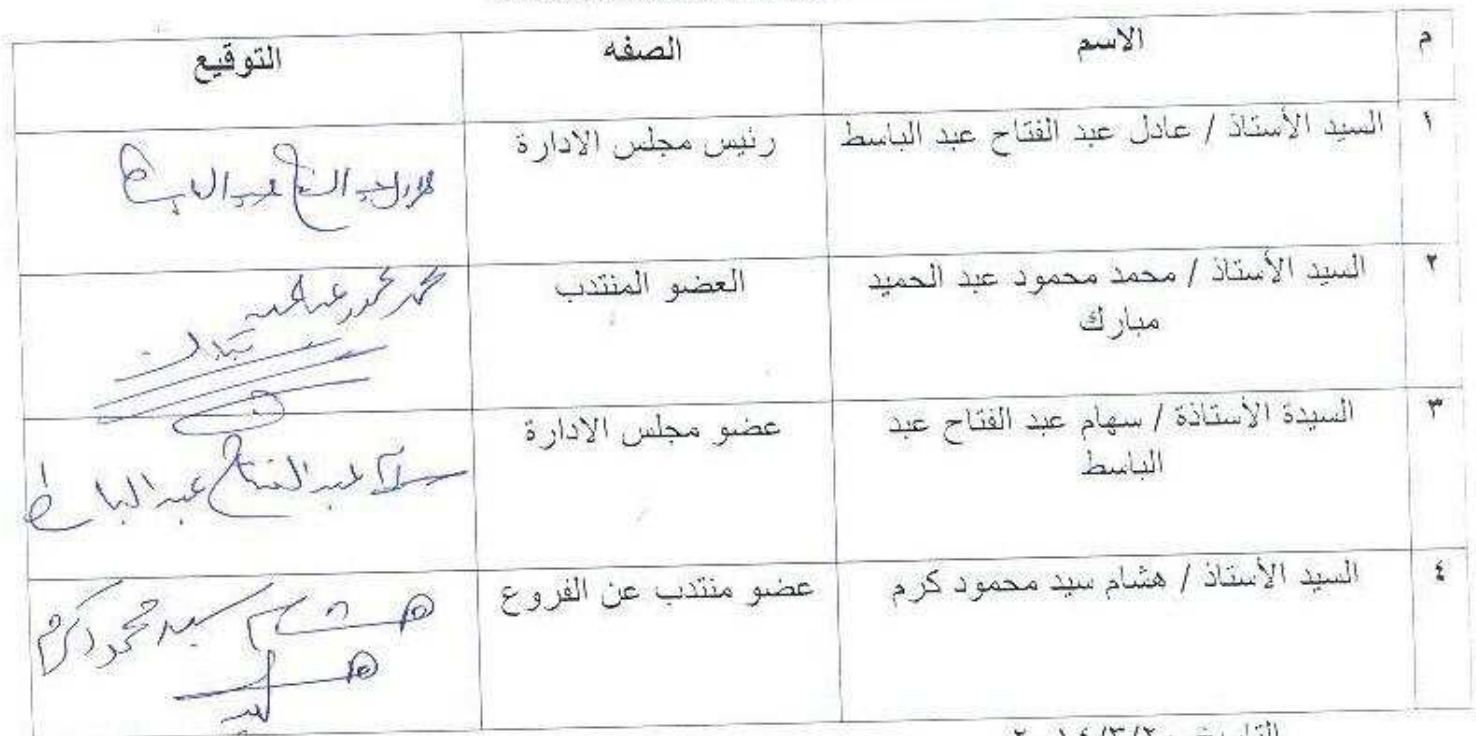 م الاسم الصفه التوقيع
١ السيد الأستاذ / عادل عبد الفتاح عبد الباسط رئيس مجلس الادارة عادل عبد الفتاح عبد الباسط
٢ السيد الأستاذ / محمد محمود عبد الحميد العضو المنتدب محمد محمود عبد الحميد
مبارك
٣ السيدة الأستاذة / سهام عبد الفتاح عبد عضو مجلس الادارة سهام عبد الفتاح عبد الباسط
الباسط
٤ السيد الأستاذ / هشام سيد محمود كرم عضو منتدب عن الفروع هشام سيد محمود كرم